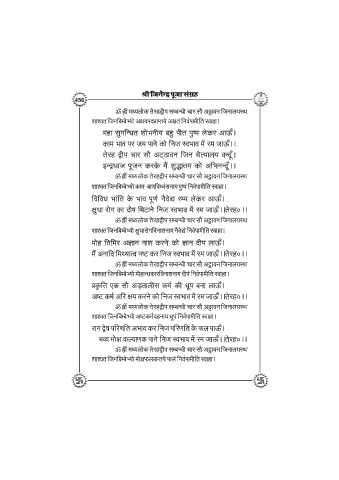 श्री जिनेन्द्र पूजा संग्रह
456
ॐ ह्रीं मध्यलोक तेरहद्वीप सम्बन्धी चार सौ अट्ठावन जिनालयस्थ
शाश्वत जिनबिम्बेभ्यो अक्षयपदप्राप्तये अक्षतं निर्वपामीति स्वाहा।
महा सुगन्धित शोभनीय बहु पीत पुष्प लेकर आऊँ।
काम भाव पर जय पाने को निज स्वभाव में रम जाऊँ।।
तेरह द्वीप चार सौ अट्ठावन जिन चैत्यालय वन्दूँ।
इन्द्रध्वज पूजन करके मैं शुद्धातम को अभिनन्दूँ।।
ॐ ह्रीं मध्यलोक तेरहद्वीप सम्बन्धी चार सौ अट्ठावन जिनालयस्थ
शाश्वत जिनबिम्बेभ्यो काम-बाणविध्वंसनाय पुष्पं निर्वपामीति स्वाहा।
विविध भांति के भाव पूर्ण नैवेद्य रम्य लेकर आऊँ।
क्षुधा रोग का दोष मिटाने निज स्वभाव में रम जाऊँ।।तेरह०।।
ॐ ह्रीं मध्यलोक तेरहद्वीप सम्बन्धी चार सौ अट्ठावन जिनालयस्थ
शाश्वत जिनबिम्बेभ्यो क्षुधारोगविनाशनाय नैवेद्यं निर्वपामीति स्वाहा।
मोह तिमिर अज्ञान नाश करने को ज्ञान दीप लाऊँ।
मैं अनादि मिथ्यात्व नष्ट कर निज स्वभाव में रम जाऊँ।।तेरह०।।
ॐ ह्रीं मध्यलोक तेरहद्वीप सम्बन्धी चार सौ अट्ठावन जिनालयस्थ
शाश्वत जिनबिम्बेभ्यो मोहान्धकारविनाशनाय दीपं निर्वपामीति स्वाहा।
प्रकृति एक सौ अड़तालीस कर्म की धूप बना लाऊँ।
अष्ट कर्म अरि क्षय करने को निज स्वभाव में रम जाऊँ।।तेरह०।।
ॐ ह्रीं मध्यलोक तेरहद्वीप सम्बन्धी चार सौ अट्ठावन जिनालयस्थ
शाश्वत जिनबिम्बेभ्यो अष्टकर्मदहनाय धूपं निर्वपामीति स्वाहा।
राग द्वेष परिणति अभाव कर निज परिणति के फल पाऊँ।
भव्य मोक्ष कल्याणक पाने निज स्वभाव में रम जाऊँ।।तेरह०।।
ॐ ह्रीं मध्यलोक तेरहद्वीप सम्बन्धी चार सौ अट्ठावन जिनालयस्थ
शाश्वत जिनबिम्बेभ्यो मोक्षफलप्राप्तये फलं निर्वपामीति स्वाहा।